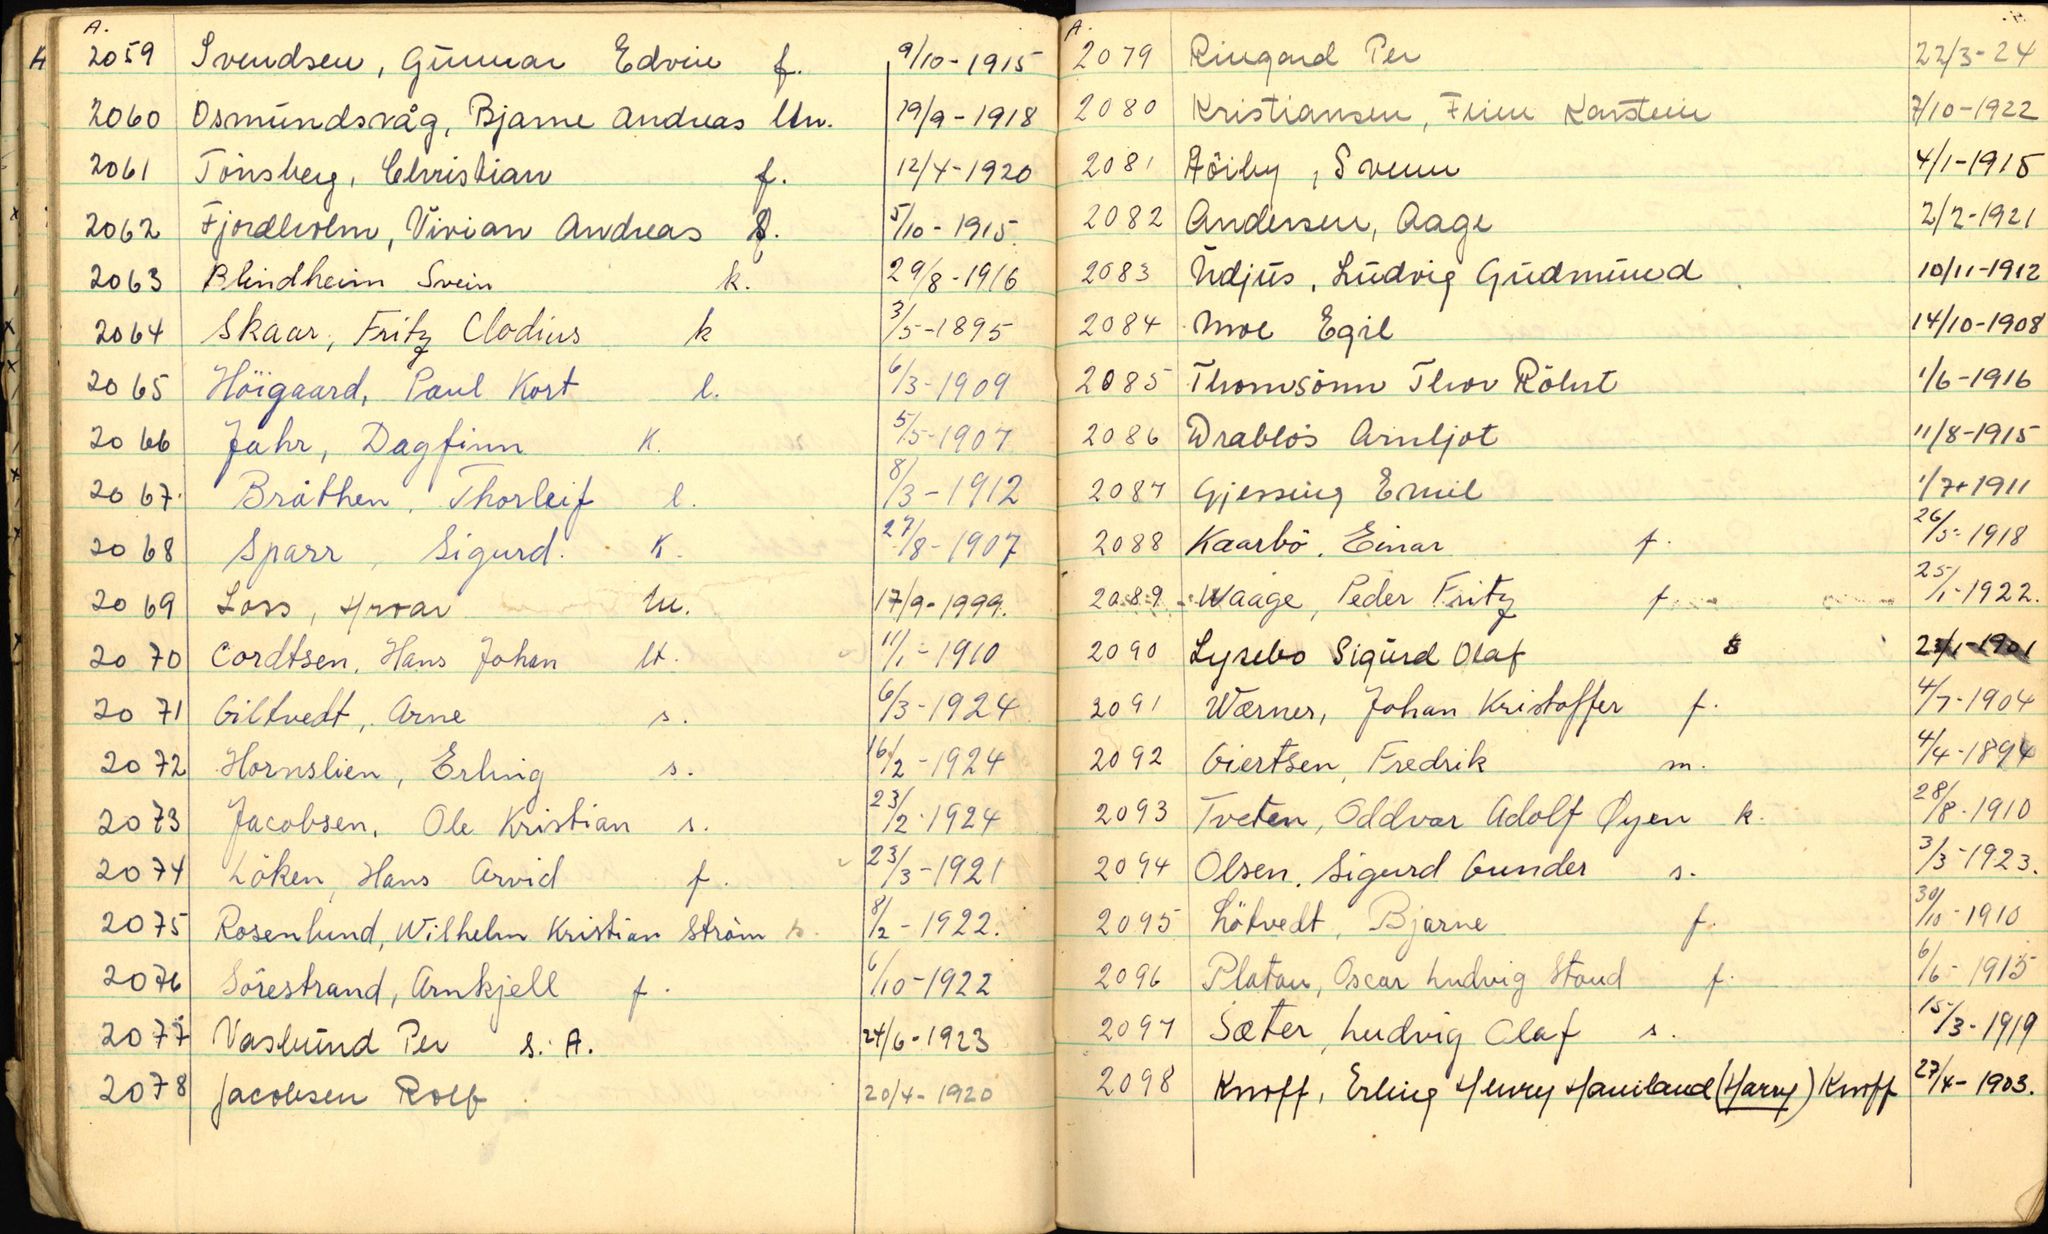 A.
2059 Svendsen, Gunnar Edvin f. 9/10-1915
2060 Osmundsvåg, Bjarne Andreas Un. 19/9-1918
2061 Tönsberg, Christian f. 12/4-1920
2062 Fjordholm, Vivian Andreas f. 5/10-1915.
2063 Blindheim Svein k. 29/8-1916
2064 Skaar, Fritz Clodius k 3/5-1895
2065 Höigaard, Paul Kort l. 6/3-1909
2066 Jahr, Dagfinn K. 5/5-1907
2067 Bråthen, Thorleif l. 8/3-1912
2068 Sparr, Sigurd. K. 27/8-1907
2069 Loss, Hroar 17/9-1999.
2070 Cordtsen, Hans Johan lt. 11/1-1910
2071 Giltvedt, Arne s. 6/3-1924
2072 Hornslien, Erling s. 16/2-1924
2073 Jacobsen, Ole Kristian s. 23/2-1924
2074 Löken, Hans Arvid f. 23/3-1921
2075 Rosenlund, Wilhelm Kristian Ström s. 8/2-1922.
2076 Sörestrand, Arnkjell f. 6/10-1922
2077 Vaslund Per s. A. 24/6-1923
2078 Jacobsen Rolf 20/4-1920
A.
2079 Ringard Per 22/3-24
2080 Kristiansen, Finn Karstein 7/10-1922
2081 Höiby, Svenn 4/1-1915
2082 Andersen, Aage 2/2-1921
2083 Udjus, Ludvig Gudmund 10/11-1912
2084 Moe Egil 14/10-1908
2085 Thomsönn Thor Röhrt 1/6-1916
2086 Drabløs Arnljot 11/8-1915
2087 Gjessing Emil 1/7-1911
2088 Kaarbö. Einar f. 26/5-1918
2089 Waage, Peder Fritz f 25/1-1922.
2090 Lysebo Sigurd Olaf s 23/1-1901
2091 Wærner, Johan Kristoffer f. 4/7-1904
2092 Giertsen, Fredrik m. 4/4-1894
2093 Tveten, Oddvar Adolf Øyen k. 28/8-1910
2094 Olsen, Sigurd Gunder s. 3/3-1923.
2095 Lötvedt, Bjarne f. 30/10-1910
2096 Platou, Oscar Ludvig Stoud f. 6/6-1915
2097 Sæter, Ludvig Olaf s. 15/3-1919
2098 Knoff, Erling Henry Haviland (Harry) Knoff 27/4-1903.